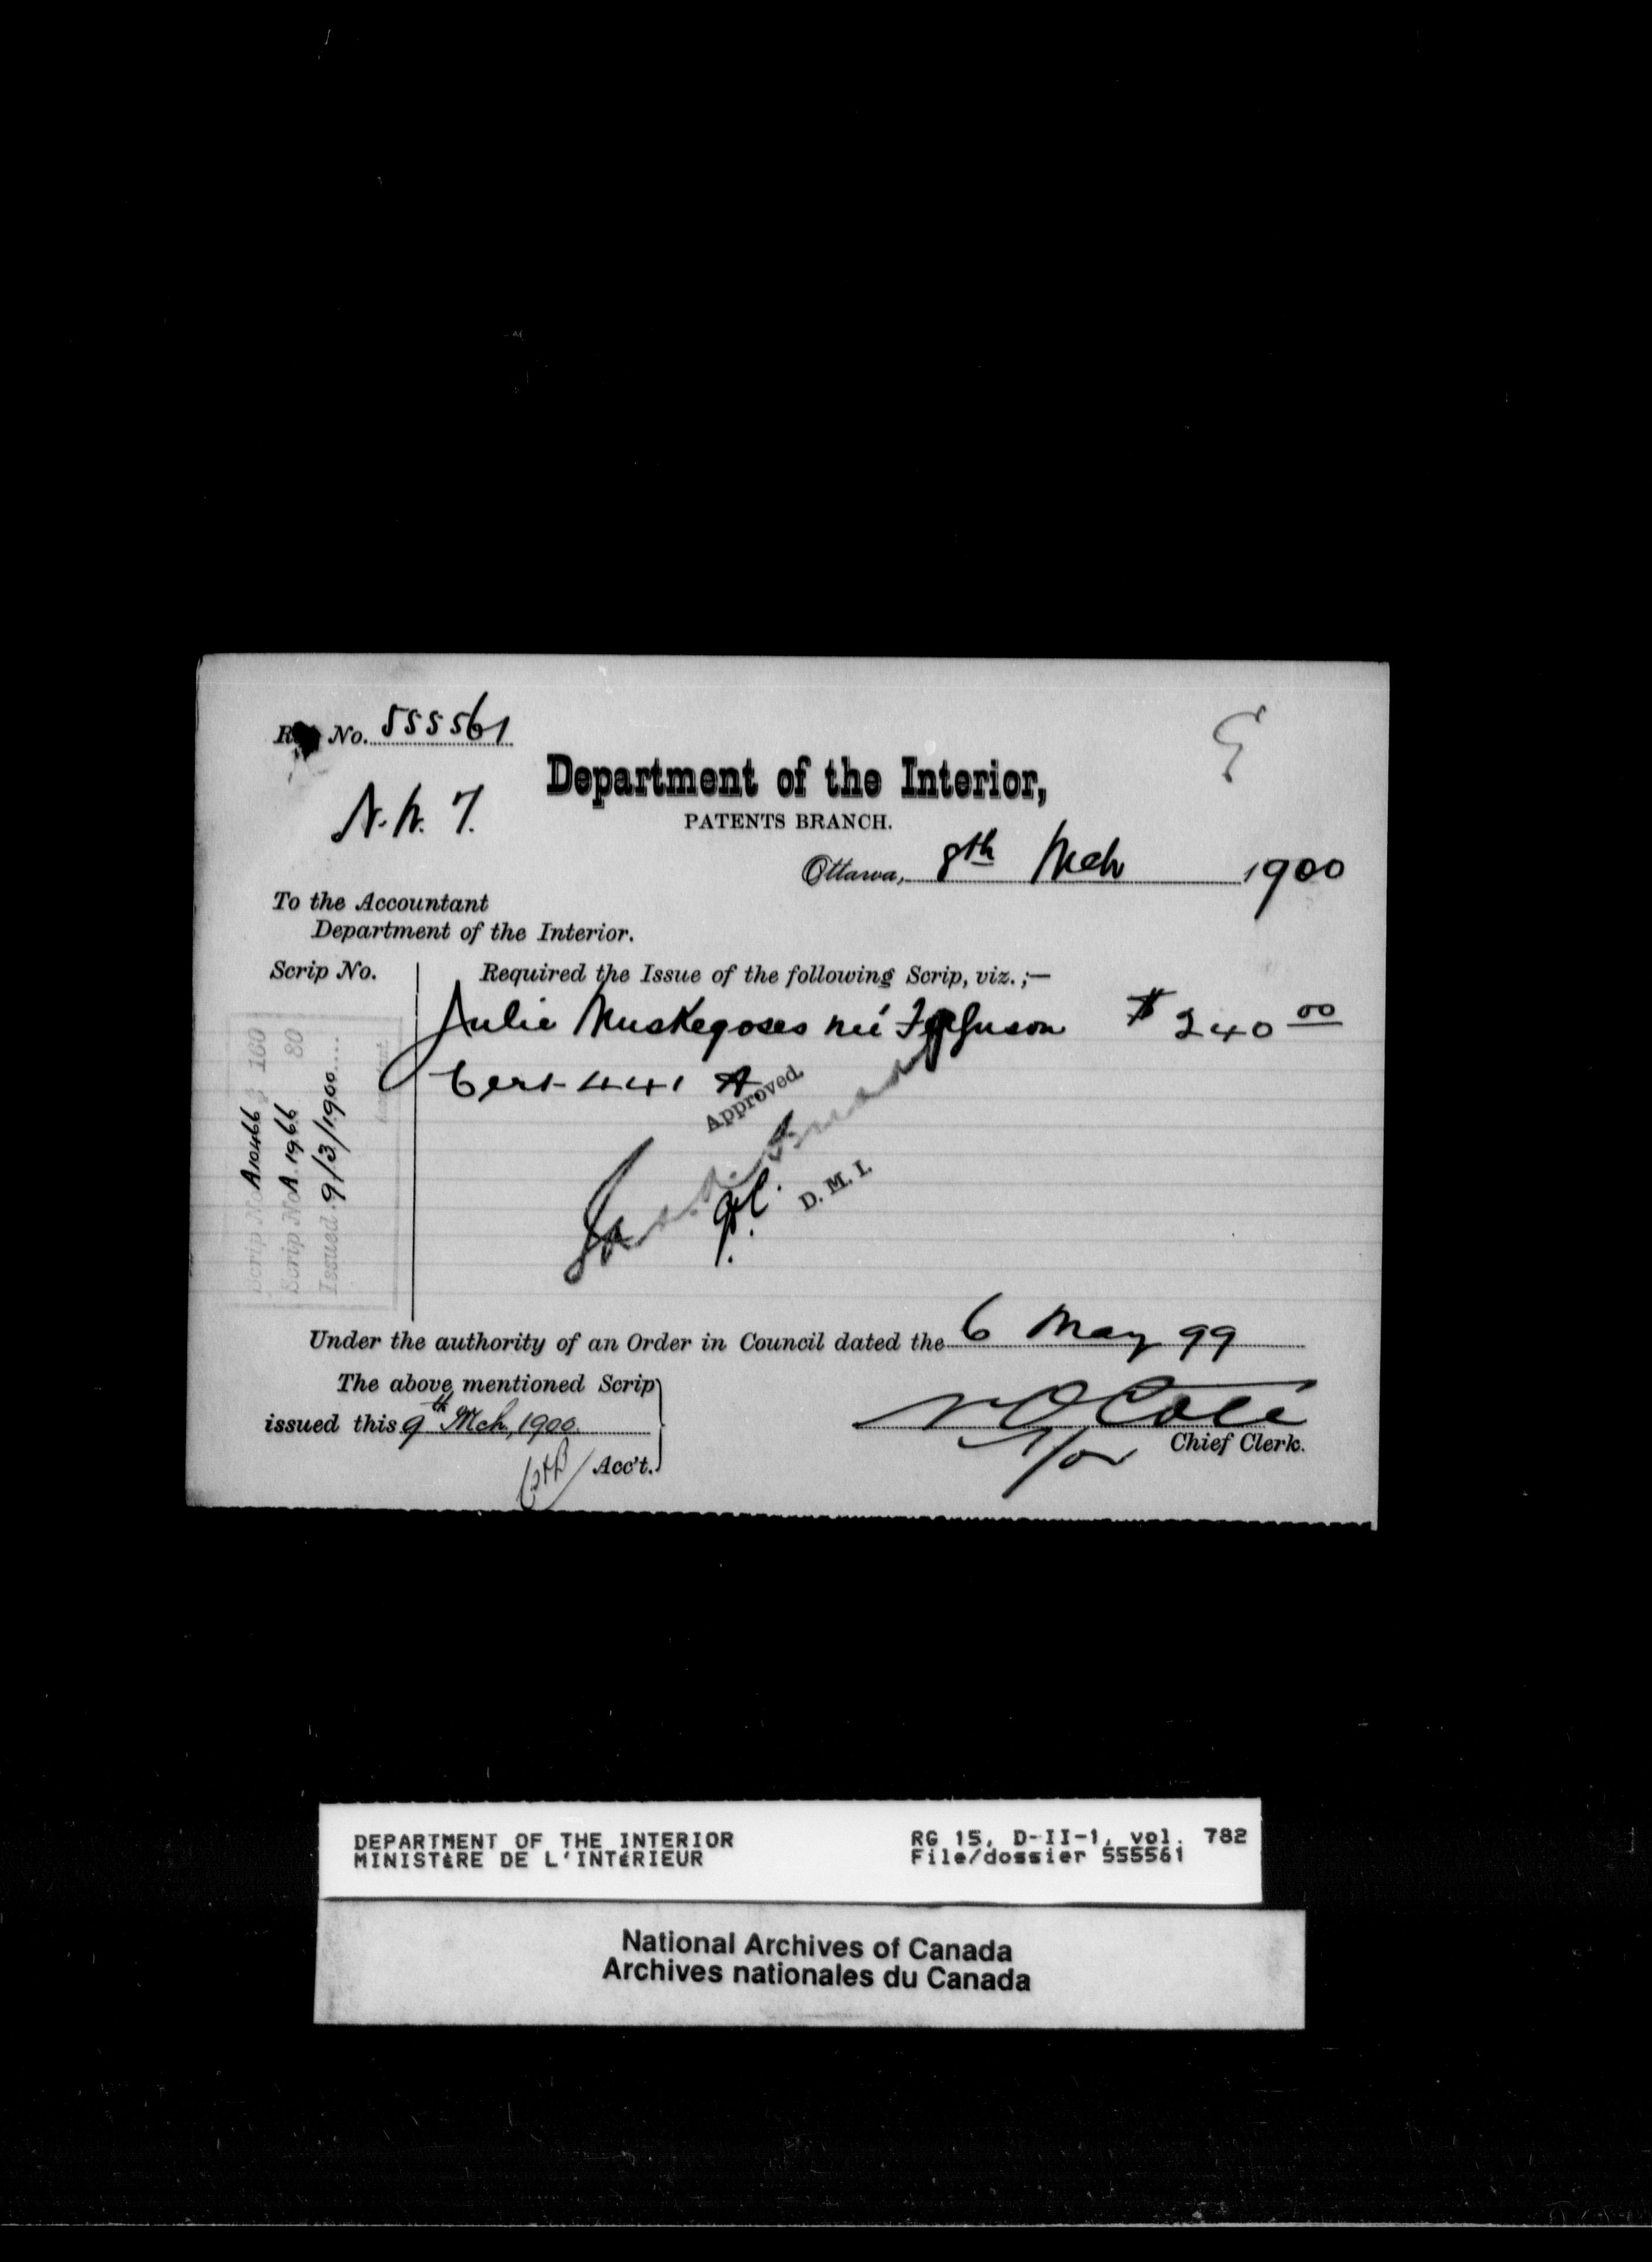 No. 555561
N. W. T.
Department of the Interior,
PATENTS BRANCH.
Ottawa, 8th Mch 1900
To the Accountant
Department of the Interior.
Scrip No.
Required the Issue of the following Scrip, viz.;—
Julie Muskegoses neé Ferguson $ 240 00
Cert 441 A
Approved
D. M. I.
Scrip No A10466 $ 160
Scrip No A.1966 80
Issued 9/3/1900
Under the authority of an Order in Council dated the 6 May 99
The above mentioned Scrip
issued this 9th Mch, 1900.
Acc't.
N O Coté
for Chief Clerk.
DEPARTMENT OF THE INTERIOR
MINISTÈRE DE L'INTÉRIEUR
RG 15, D-II-1, vol. 782
File/dossier 555561
National Archives of Canada
Archives nationales du Canada